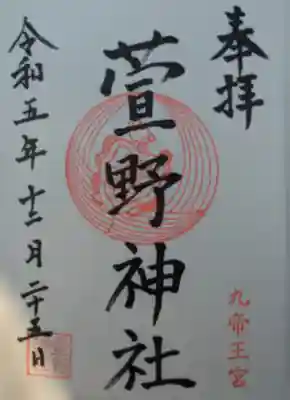 奉拝
萱野神社
九帝王宮
令和五年十二月二十五日